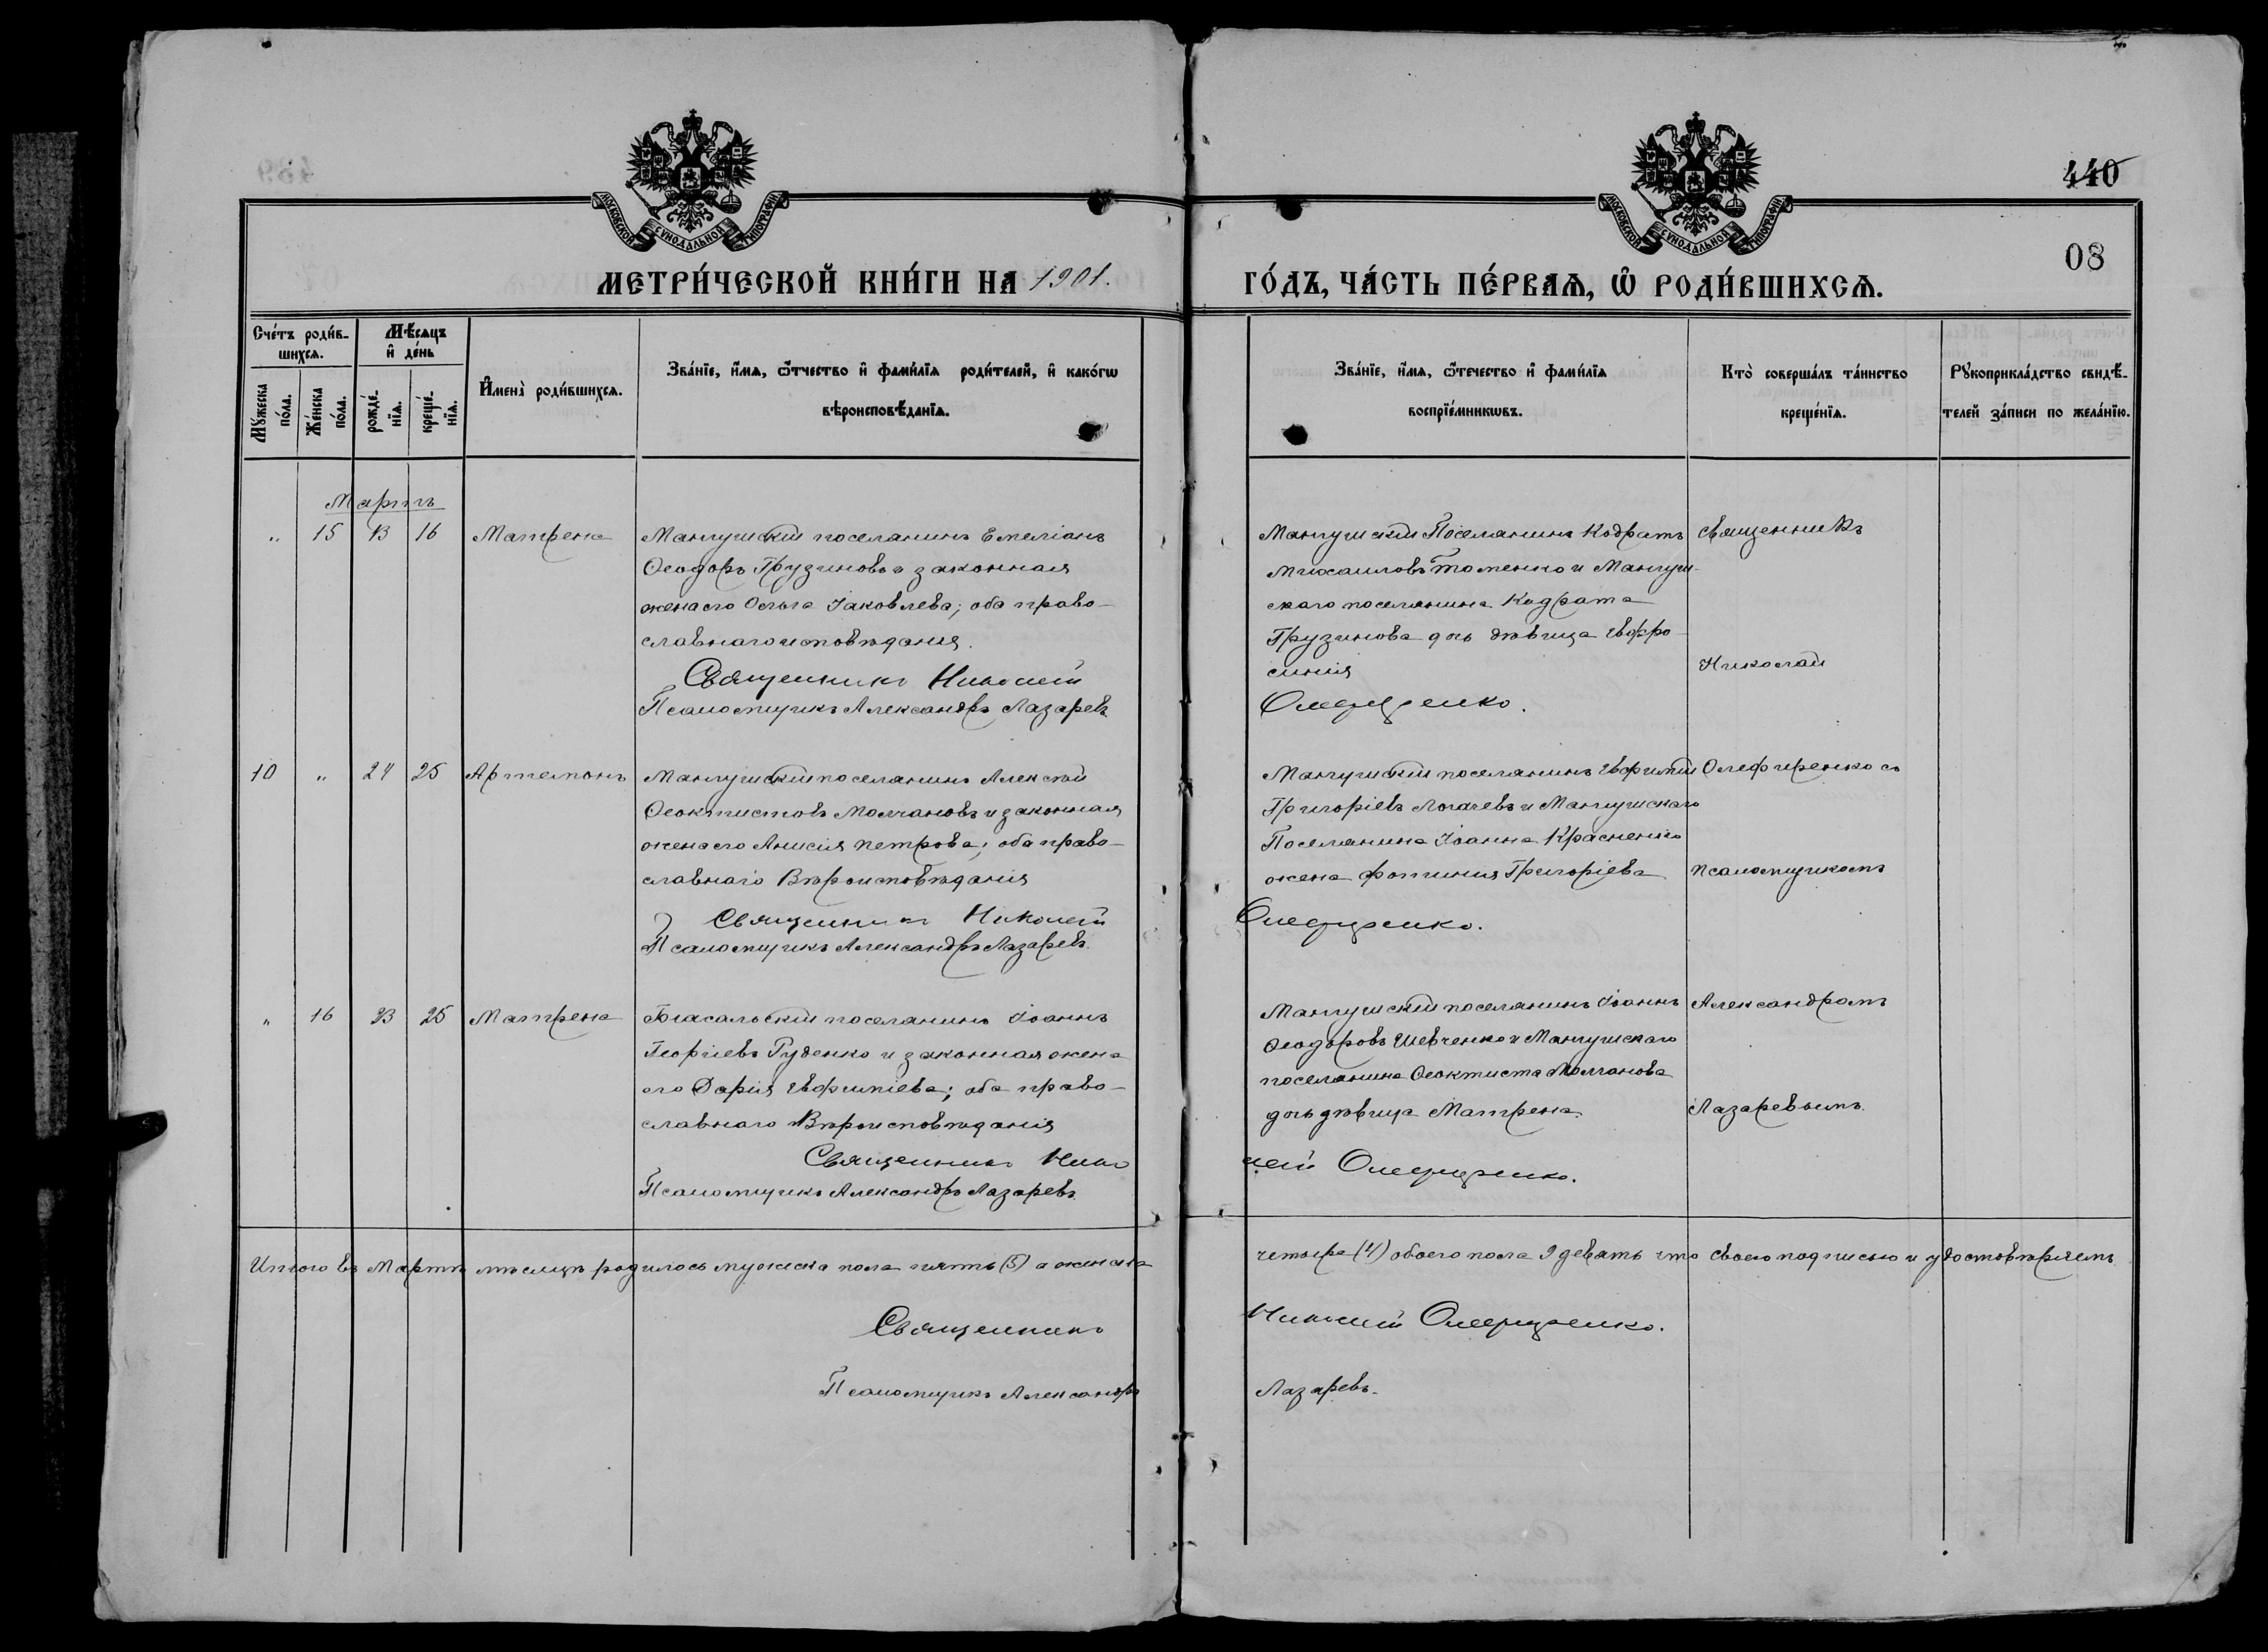 440
08
МОСКОВСКОЙ СѴНОДАЛЬНОЙ ТИПОГРАФІИ
МОСКОВСКОЙ СѴНОДАЛЬНОЙ ТИПОГРАФІИ
МЕТРИ́ЧЕСКОЙ КНИ́ГИ НА 1901.
ГО́ДЪ, ЧА́СТЬ ПЕ́РВАѦ, Ѿ РОДИ́ВШИХСѦ.
Сче́тъ роди́в-
шихсѧ.
Мѣ́сѧцъ
и҆ де́нь
Мꙋ́жеска
по́ла.
Же́нска
по́ла.
рожде́-
нїѧ.
креще́-
нїѧ.
И҆мена̀ роди́вшихсѧ.
Зва́нїе, и҆́мѧ, ѻ҆́тчество и҆ фами́лїѧ роди́телей, и҆ како́гѡ
вѣроисповѣ́данїѧ.
Зва́нїе, и҆́мѧ, ѻ҆те́чество и҆ фами́лїѧ
воспрїе́мникѡвъ.
Кто̀ соверша́лъ та́инство
креще́нїѧ.
Рꙋкоприкла́дство свидѣ́-
телей за́писи по жела́нїю.
Мартъ
" 15 13 16 Матрена
Мангушскій поселянинъ Емеліанъ
Ѳеодоръ Грузиновъ и законная
жена его Ольга Іаковлева; оба право-
славнаго исповѣданія.
Священникъ Николай
Псаломщикъ Александръ Лазаревъ
Мангушскій Поселянинъ Кодратъ
Михаиловъ Томенко и Мангуш-
скаго поселянина Кодрата
Грузинова дочь дѣвица Евфро-
синія
Олефиренко.
Священникъ
Николай
10 " 24 25 Артемонъ
Мангушскій поселянинъ Алексѣй
Ѳеоктистовъ Молчановъ и законная
жена его Анисія Петрова; оба право-
славнаго Вѣроисповѣданія
Священникъ Николай
Псаломщикъ Александръ Лазаревъ
Мангушскій поселянинъ Евфимій
Григоріевъ Логачевъ и Мангушскаго
Поселянина Іоанна Красненко
жена Фотинія Григоріева
Олефиренко.
Олефиренко съ
псаломщикомъ
" 16 23 25 Матрена
Біасальскій поселянинъ Іоаннъ
Георгіевъ Руденко и законная жена
его Дарія Евфиміева; оба право-
славнаго Вѣроисповѣданія
Священникъ Нико
Псаломщикъ Александръ Лазаревъ
Мангушскій поселянинъ Іоаннъ
Ѳеодоровъ Шевченко и Мангушскаго
поселянина Ѳеоктиста Молчанова
дочь дѣвица Матрена
лай Олефиренко.
Александромъ
Лазаревымъ.
Итого въ Мартѣ мѣсяцѣ родилось мужеска пола пять (5) а женска
четыре (4) обоего пола 9 девять что своею подписью и удостовѣряемъ
Священникъ
Николай Олефиренко.
Псаломщикъ Александръ
Лазаревъ.